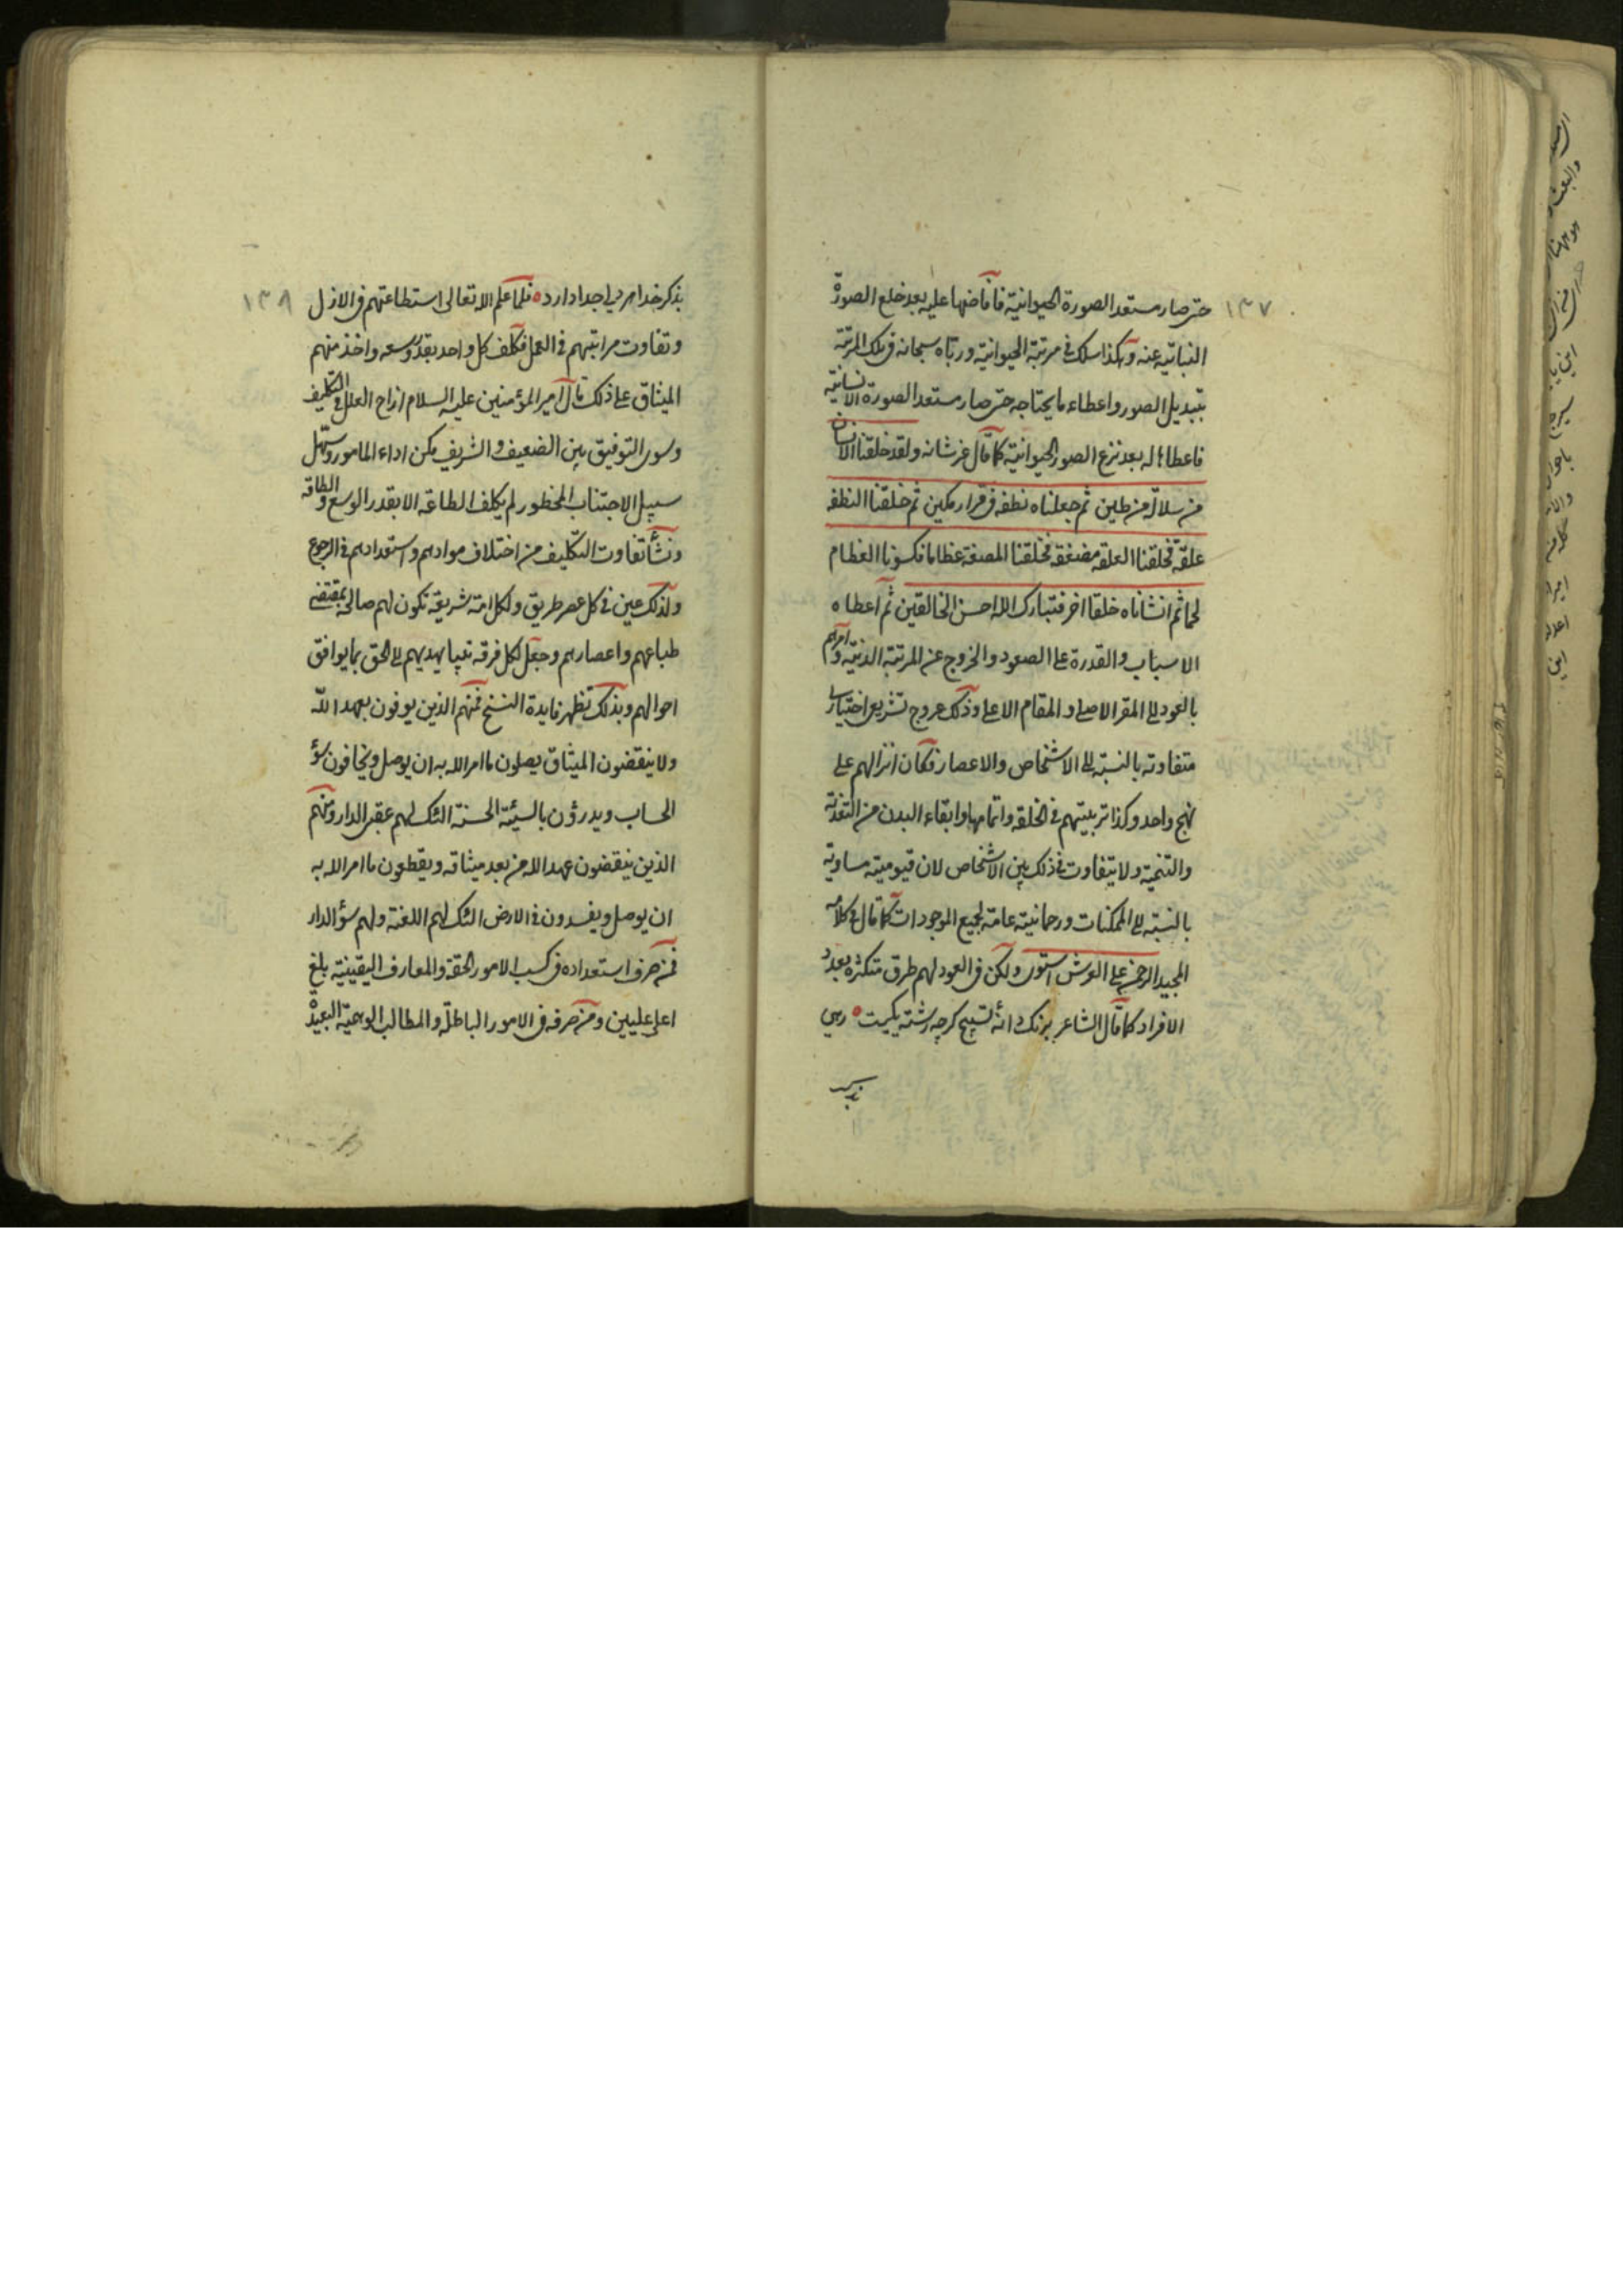 ١٣٧
حتى صار مستعد الصورة الحيوانية فافاضها عليه بعد خلع الصورة
النباتيه عنه وهكذا سلك في مرتبة الحيوانية ورباه سبحانه في تلك المرتبة
بتبديل الصور واعطاء ما يحتاجه حتى صار مستعد الصورة الانسانية
فاعطاها له بعد نزع الصور الحيوانية كما قال عز شانه ولقد خلقنا الانسان
من سلالة من طين ثم جعلناه نطفه في قرار مكين ثم خلقنا النطفه
علقة فخلقنا العلقه مضغة فخلقنا المضغة عظاما فكسونا العظام
لحما ثم انشاناه خلقا اخر فتبارك الله احسن الخالقين ثم اعطاه
الاسباب والقدرة على الصعود والخروج عن المرتبة الدنية وامرهم
بالعود الى المقر الاصلي والمقام الاعلى وذلك عروج تشريعي اختياري
متفاوته بالنسبة الى الاشخاص والاعصار فكان انزالهم على
نهج واحد وكذا تربيتهم في الخلقه واتمامها وابقاء البدن من التغذية
والتنمية ولا يتفاوت في ذلك بين الاشخاص لان قيوميته مساوية
بالنسبة الى الممكنات ورحمانيته عامة لجميع الموجودات كما قال في كلامه
المجيد الرحمن على العرش استوى ولكن في العود لهم طرق متكثره بعدد
الافراد كما قال الشاعر بزنك دانه تسبيح كرچه رشته يكيست رهى
بذكر
١٣٨
بذكر خدا هر دلى جدا دارد فلما علم الله تعالى استطاعتهم في الازل
وتفاوت مراتبهم في العمل فكلف كل واحد بقدر وسعه واخذ منهم
الميثاق على ذلك قال امير المؤمنين عليه السلام ازاح العلل في التكليف
وسوى التوفيق بين الضعيف والشريف مكن اداء المامور وسهل
سبيل الاجتناب المحظور لم يكلف الطاعة الا بقدر الوسع والطاقه
ونشأ تفاوت التكليف من اختلاف موادهم واستعدادهم في الرجوع
ولذلك عين في كل عصر طريق ولكل امة شريعة تكون لهم صالحا بمقتضى
طباعهم واعصارهم وجعل لكل فرقه نبيا يهديهم الى الحق بما يوافق
احوالهم وبذلك تظهر فايدة النسخ فمنهم الذين يوفون بعهد الله
ولا ينقضون الميثاق يصلون ما امر الله به ان يوصل ويخافون سؤ
الحساب ويدرؤن بالسيئة الحسنة اولئك لهم عقبى الدار ومنهم
الذين ينقضون عهد الله من بعد ميثاقه ويقطعون ما امر الله به
ان يوصل ويفسدون في الارض اولئك لهم اللعنة ولهم سؤ الدار
فمن صرف استعداده في كسب الامور الحقة والمعارف اليقينية بلغ
اعلى عليين ومن صرفه في الامور الباطلة والمطالب الوهمية البعيدة